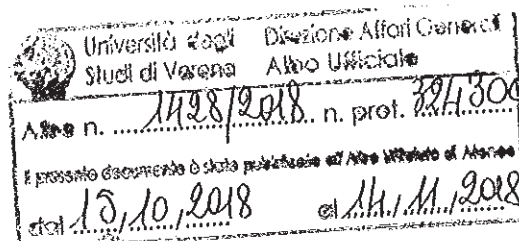 Università degli Direzione Affari Generali
Studi di Verona Albo Ufficiale
Albo n. 1428/2018 n. prot. 324300
Il presente documento è stato pubblicato all'Albo Ufficiale di Ateneo
dal 15, 10, 2018 al 14, 11, 2018